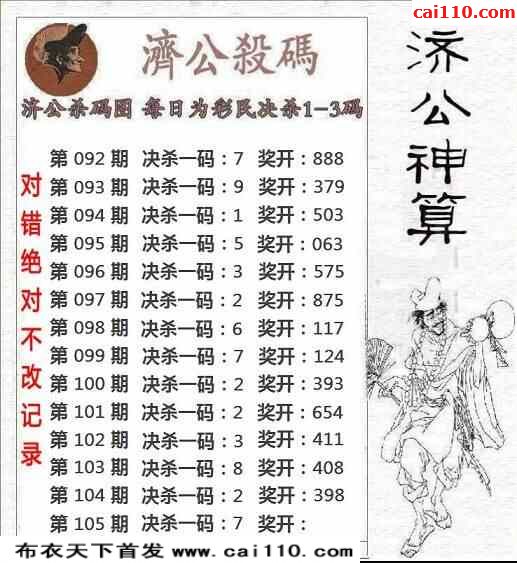 cai110.com
濟公殺碼
济公杀码图 每日为彩民决杀1-3码
对错绝对不改记录
第 092 期 决杀一码：7 奖开：888
第 093 期 决杀一码：9 奖开：379
第 094 期 决杀一码：1 奖开：503
第 095 期 决杀一码：5 奖开：063
第 096 期 决杀一码：3 奖开：575
第 097 期 决杀一码：2 奖开：875
第 098 期 决杀一码：6 奖开：117
第 099 期 决杀一码：7 奖开：124
第 100 期 决杀一码：2 奖开：393
第 101 期 决杀一码：2 奖开：654
第 102 期 决杀一码：3 奖开：411
第 103 期 决杀一码：8 奖开：408
第 104 期 决杀一码：2 奖开：398
第 105 期 决杀一码：7 奖开：
济公神算
布衣天下首发 www.cai110.com